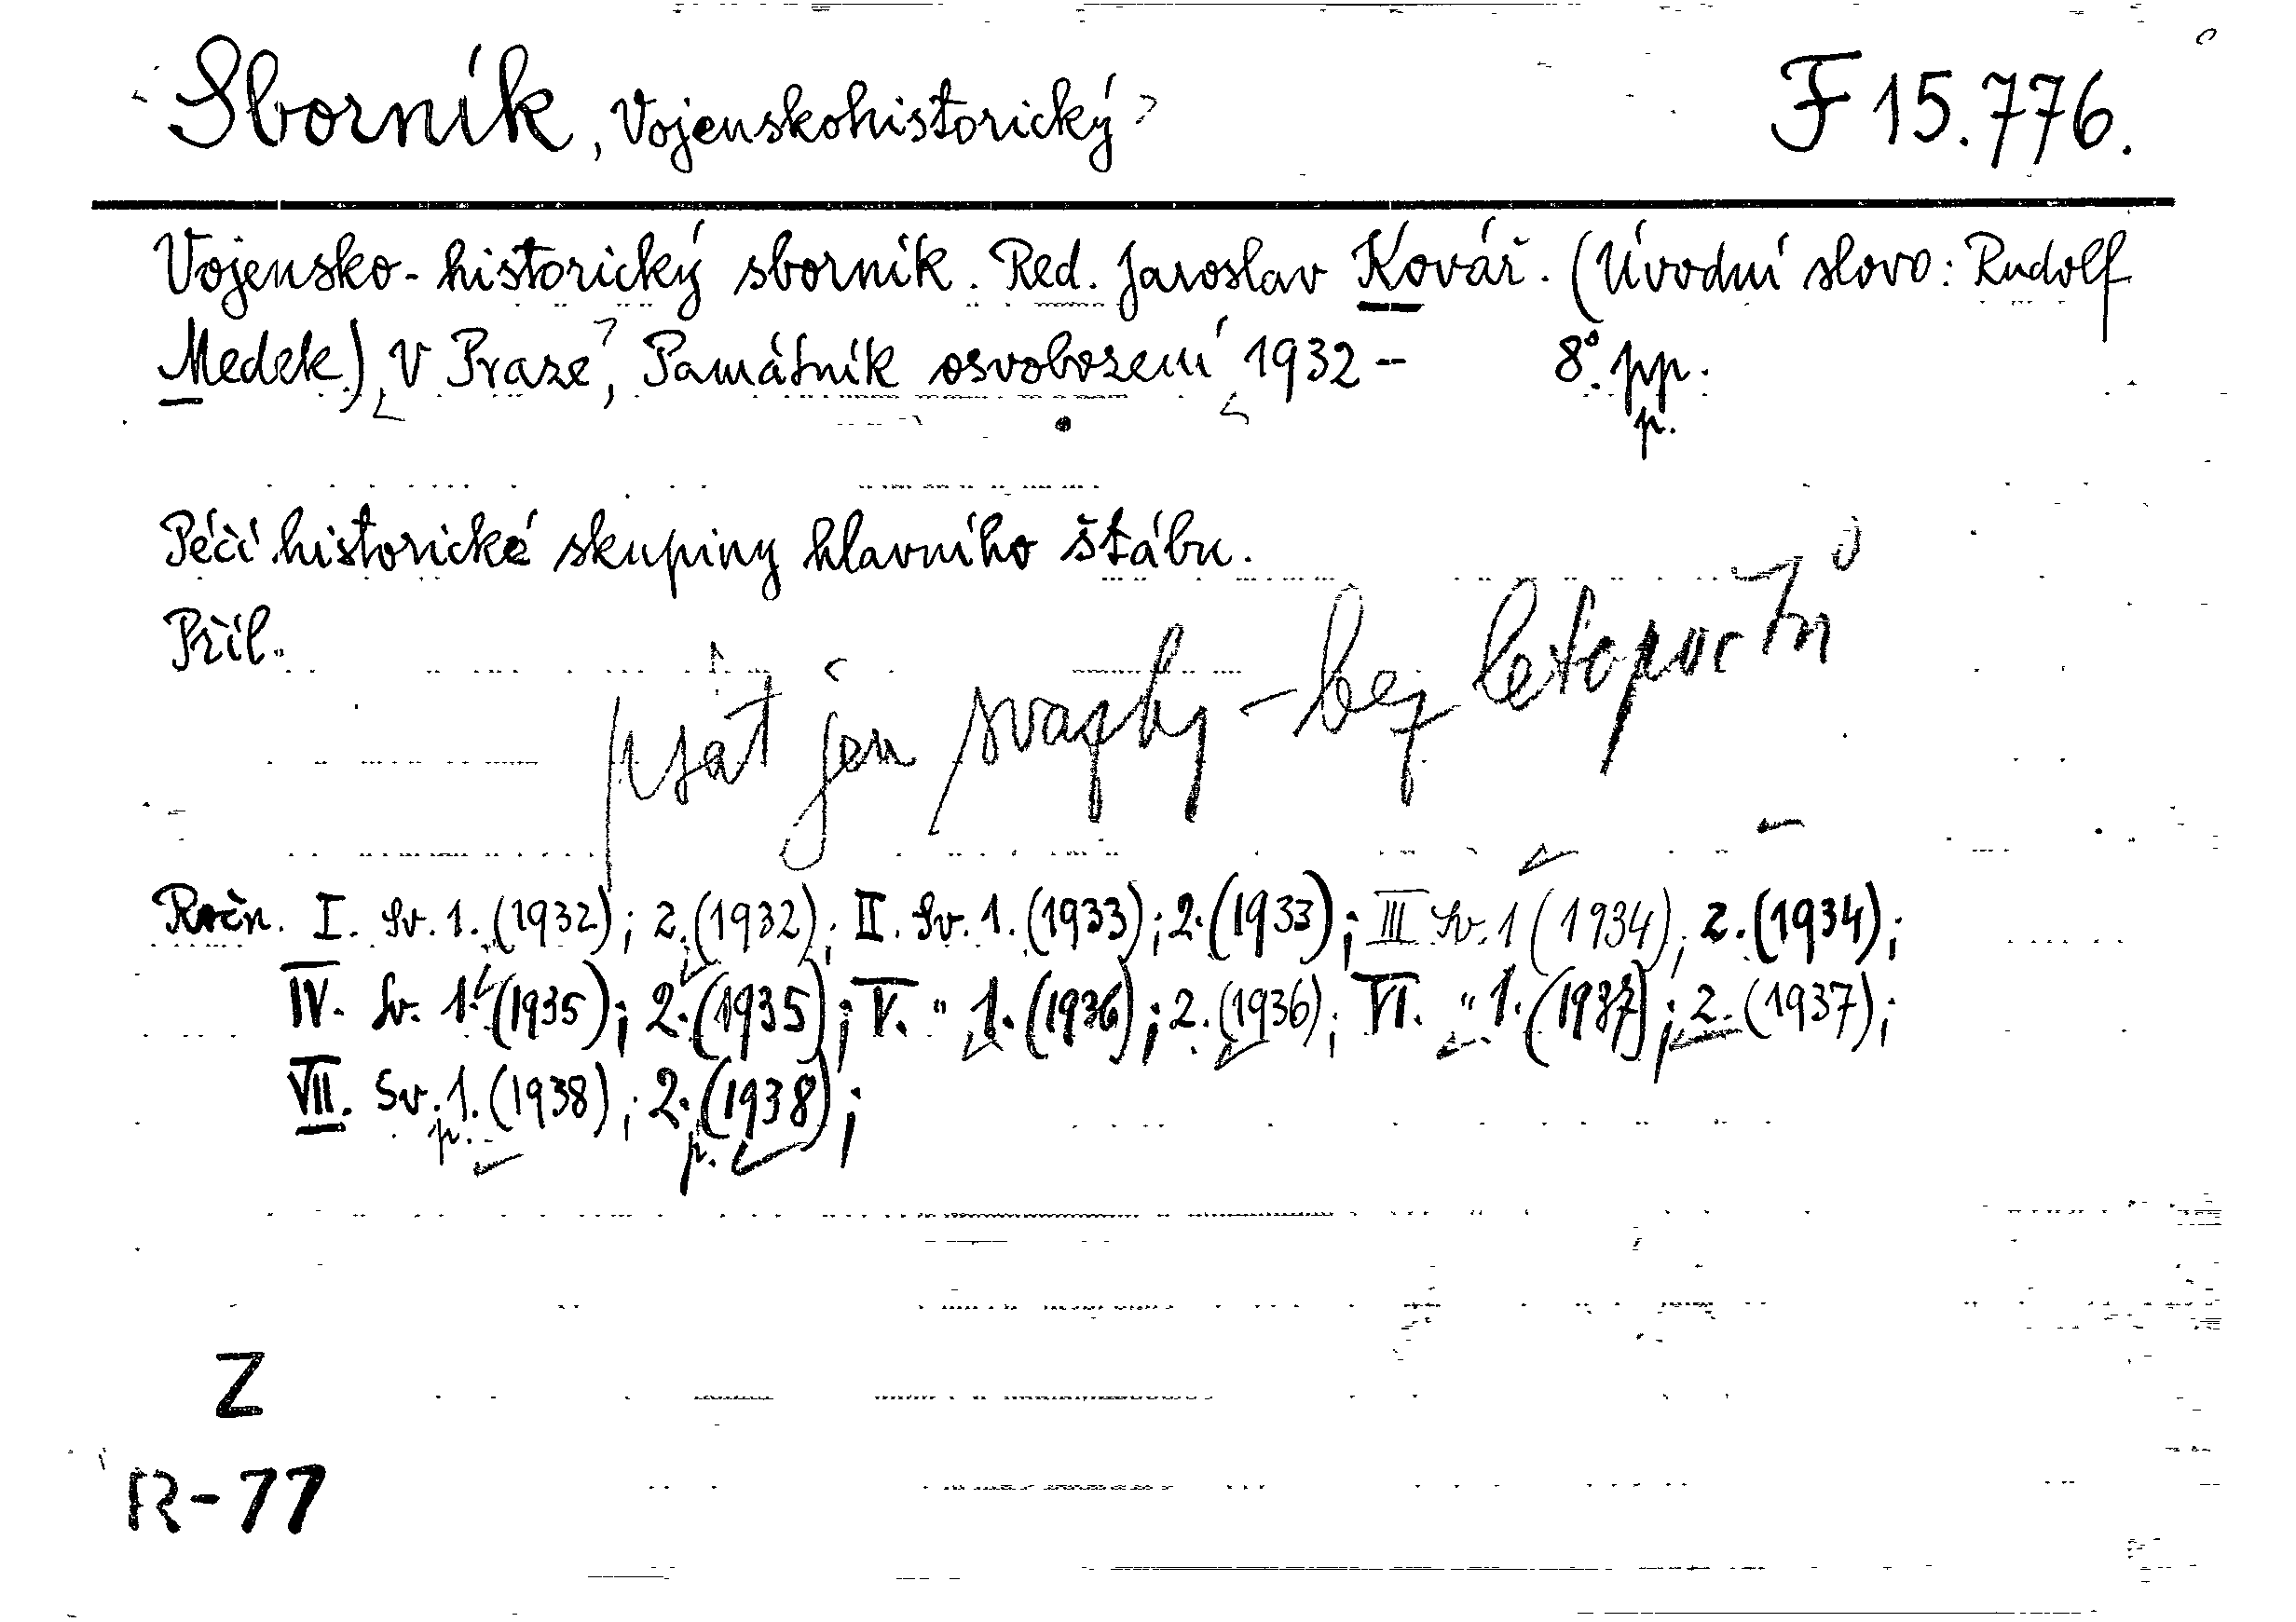 Sborník, Vojenskohistorický F 15.776.
Vojensko-historický sborník. Red. Jaroslav Kovář. (Úvodní slovo: Rudolf
Medek.) V Praze, Památník osvobození 1932 – 8° pp.
p.
Péčí historické skupiny hlavního štábu.
Příl.
psát jen svazky – bez letopočtů
Ročn. I. Sv. 1. (1932); 2. (1932); II. Sv. 1. (1933); 2. (1933); III Sv. 1 (1934); 2. (1934);
IV. Sv. 1. (1935); 2. (1935); V. " 1. (1936); 2. (1936); VI. " 1. (1937); 2. (1937);
VII. Sv. 1. (1938); 2. (1938);
p. p.
Z
R-77